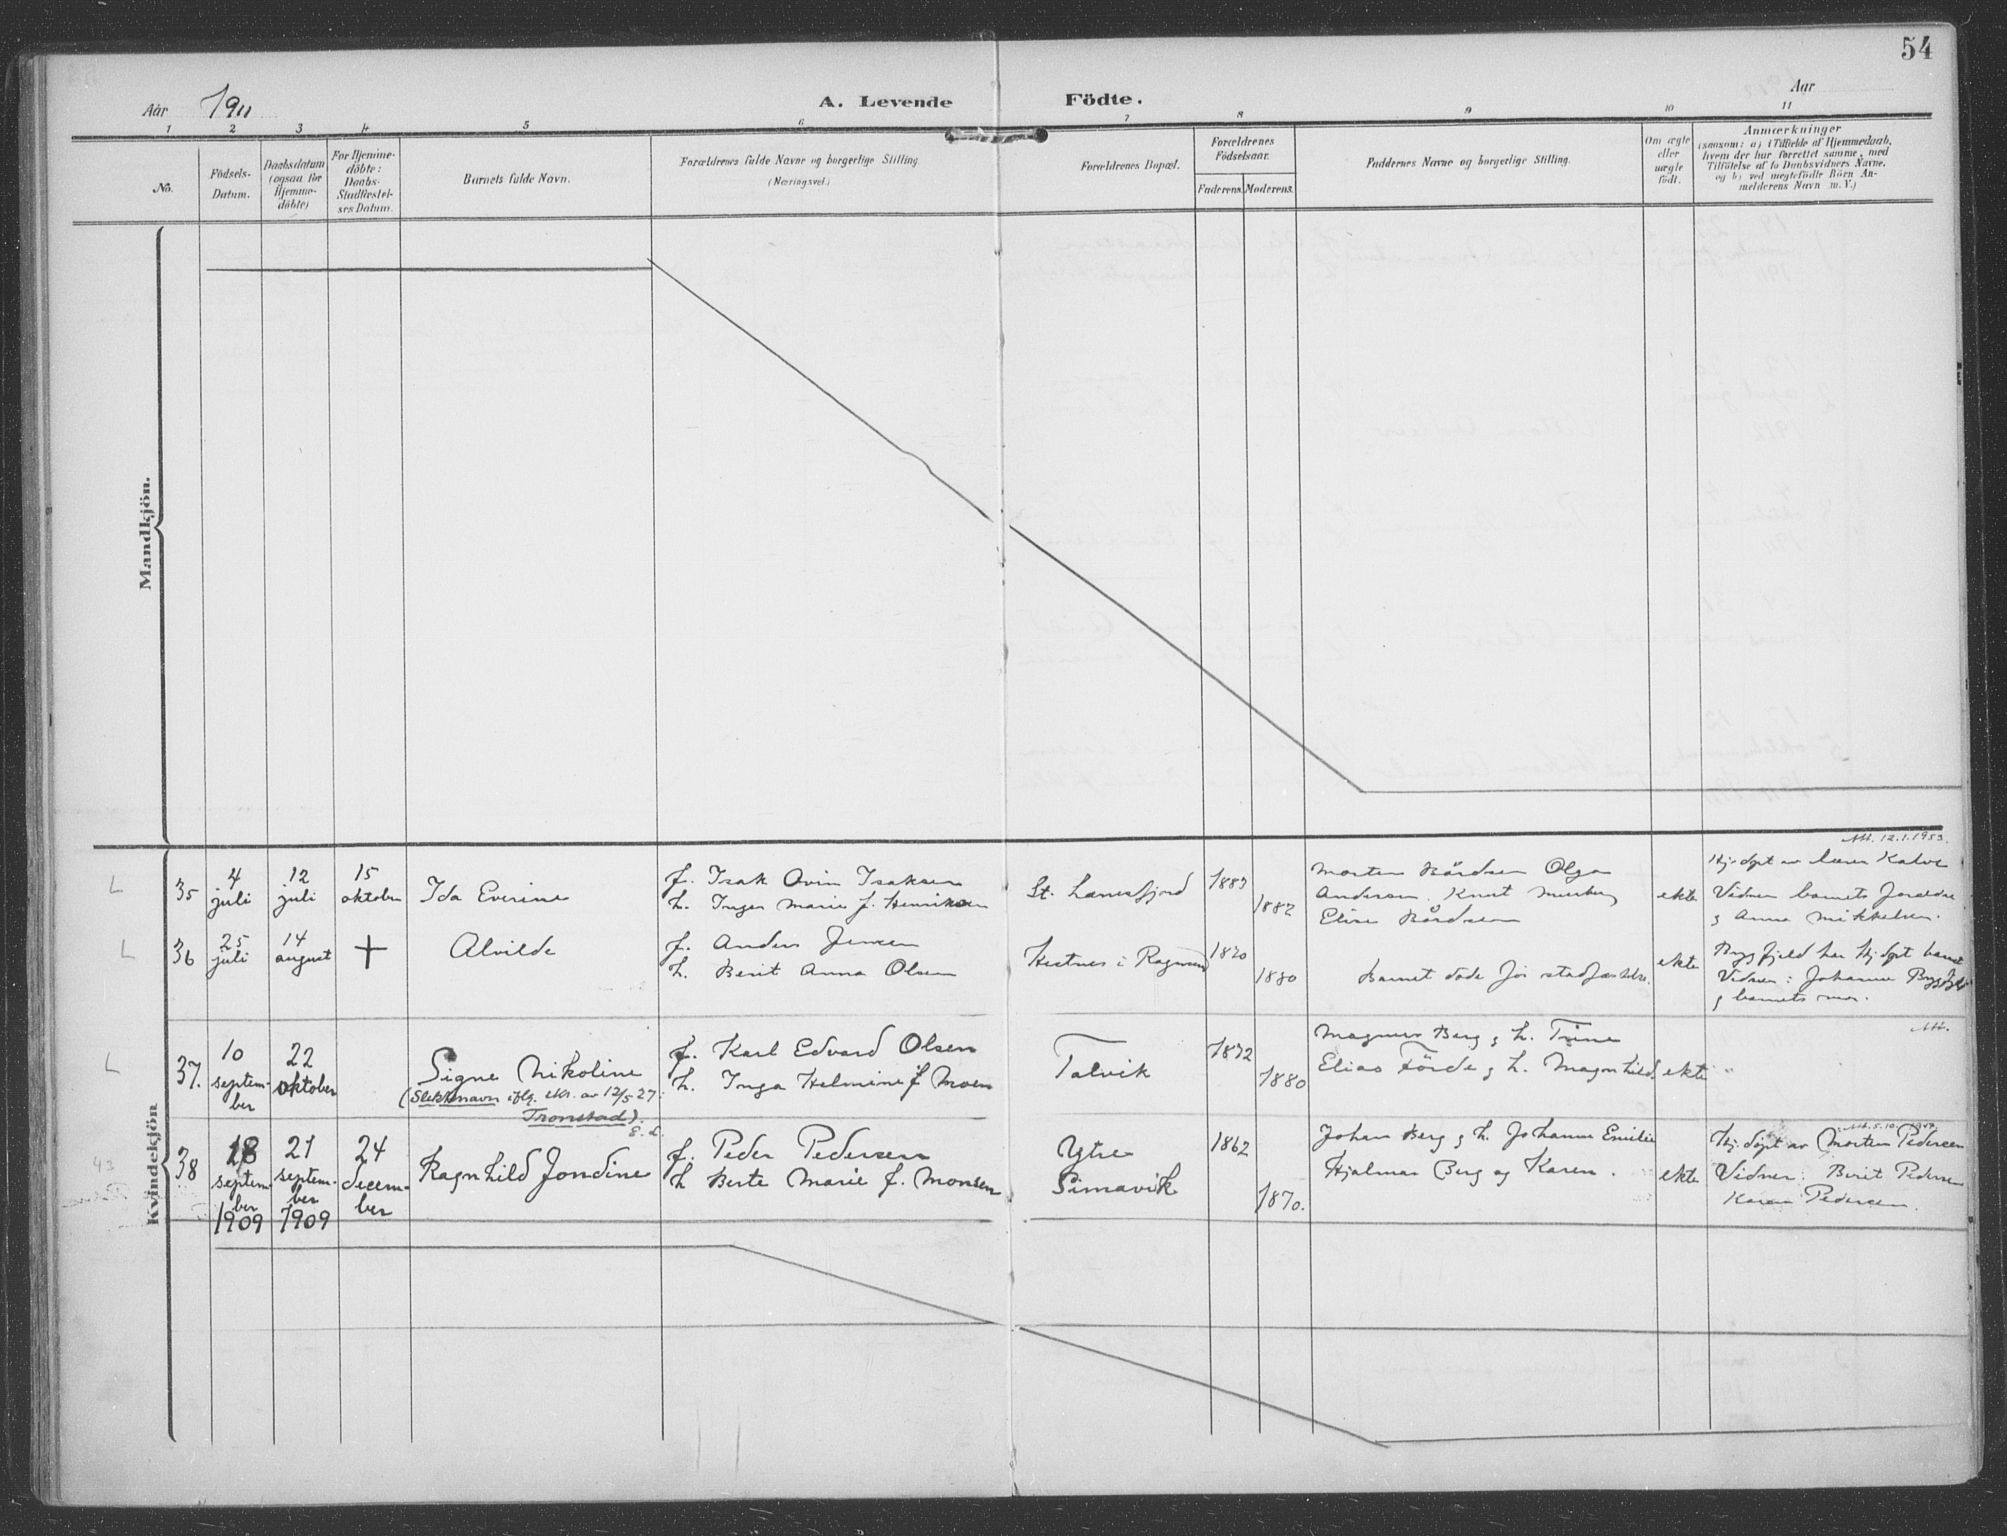 54
Aar 1911
A. Levende Födte.
Aar
1 2 3 4 5 6 7 8 9 10 11
No.
Födsels-
Datum.
Daabsdatum
(ogsaa for
Hjemme-
döbte)
For Hjemme-
döbte:
Daabs-
Stadfæstel-
ses Datum.
Barnets fulde Navn.
Forældrenes fulde Navne og borgerlige Stilling.
(Næringsvei.)
Forældrenes Bopæl.
Forældrenes
Födselsaar.
Faderens. Moderens.
Faddernes Navne og borgerlige Stilling.
Om ægte
eller
uægte
födt.
Anmærkninger
(saasom: a) i Tilfælde af Hjemmedaab,
hvem der har forrettet samme, med
Tilföielse af to Daabsvidners Navne,
og b) ved uægtefödte Börn An-
melderens Navn m. V.)
Mandkjön.
Kvindekjön
Att. 12.1.1953.
L
35
4
juli
12
juli
15
oktober
Ida Everine
f. Isak Ovin Isaksen
h. Inger Marie f. Henriksen
St. Lanesfjord
1883
1882
Morten Bårdsen Olga
Andersen. Knut
Elise Bårdsen
ekte
Hj. døpt av lærer Kalve
Vidner barnets foreldre
g Anna Mikkelsen.
L
36
25
juli
14
august
+
Alvilde
f. Anders Jensen
h. Berit Anna Olsen
Hestnes i
1880
Barnet døde før stadfæstelse.
ekte
Byggfjeld har Hj. døpt barnet
Vidner: Johanne
g barnets mor.
L
37.
10
septem-
ber
22
oktober
Signe Nikoline
(Slektsnavn iflg. skr. av 12/5 27:
Tronstad).
f. Karl Edvard Olsen
h. Inga Helmine f Moen
Talvik
1872
1880
Magnus Berg g h. Trine
Elias Förde g h. Magnhild.
ekte
Att.
38
18
septem-
ber
1909
21
septem-
ber
1909
24
decem-
ber
Ragnhild Jondine
f. Peder Pedersen
h Berte Marie f. Monsen
Ytre
Simavik
1862
1870.
Johan Berg g h. Johanna Emilie
Hjalmar Berg og Karen.
ekte
Hj. døpt av Morten Pedersen
Vidner: Berit Pedersen
Karen Pedersen.
43